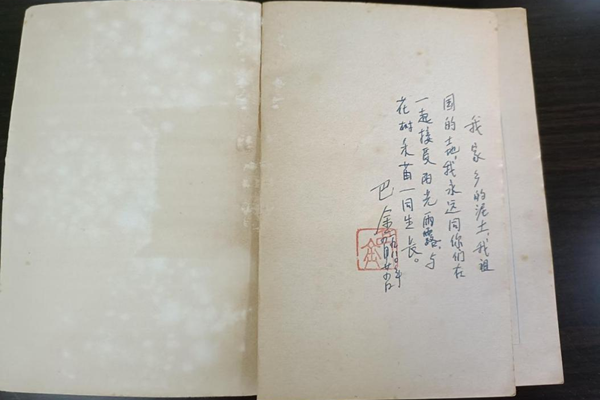 我家乡的泥土，我祖
国的土地，我永远同你们在
一起接受阳光雨露，与
花树禾苗一同生长。
巴金